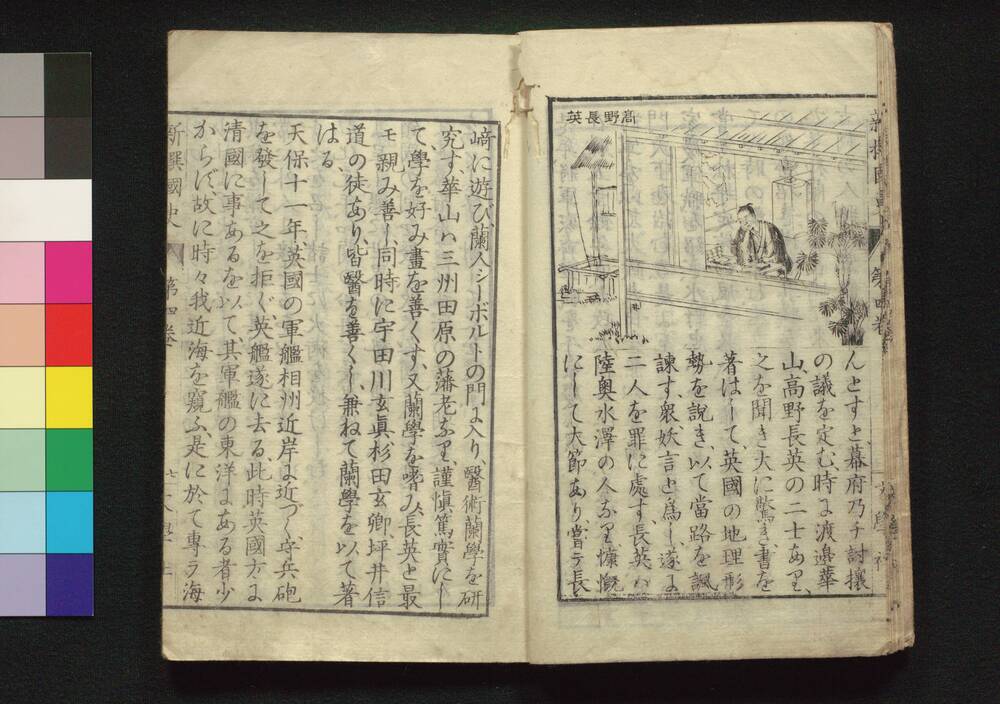 高野長英
んとすと、幕府乃チ討攘
の議を定む、時に渡邉華
山、高野長英の二士あり、
之を聞き大に驚き書を
著はして、英國の地理形
勢を説き、以て當路を諷
諫す、衆妖言と為し、遂に
二人を罪に處す、長英ハ
陸奥水澤の人なり慷慨
にして大節あり、嘗テ長
崎に遊び、蘭人シーボルトの門に入り、醫術蘭學を研
究す、華山ハ三州田原の藩老なり、謹愼篤實にし
て學を好み畫を善くす、又蘭學を嗜み、長英と最
モ親み善し、同時に宇田川玄眞杉田玄卿、坪井信
道の徒あり、皆醫を善くし、兼ねて蘭學を以て著
はる、
天保十一年、英國の軍艦相州近岸に近づく、守兵砲
を發して之を拒ぐ、英艦遂に去る、此時英國方に
清國に事あるを以て、其軍艦の東洋にある者少
からず、故に時々我近海を窺ふ是に於て專ラ海
新撰國史 第四卷